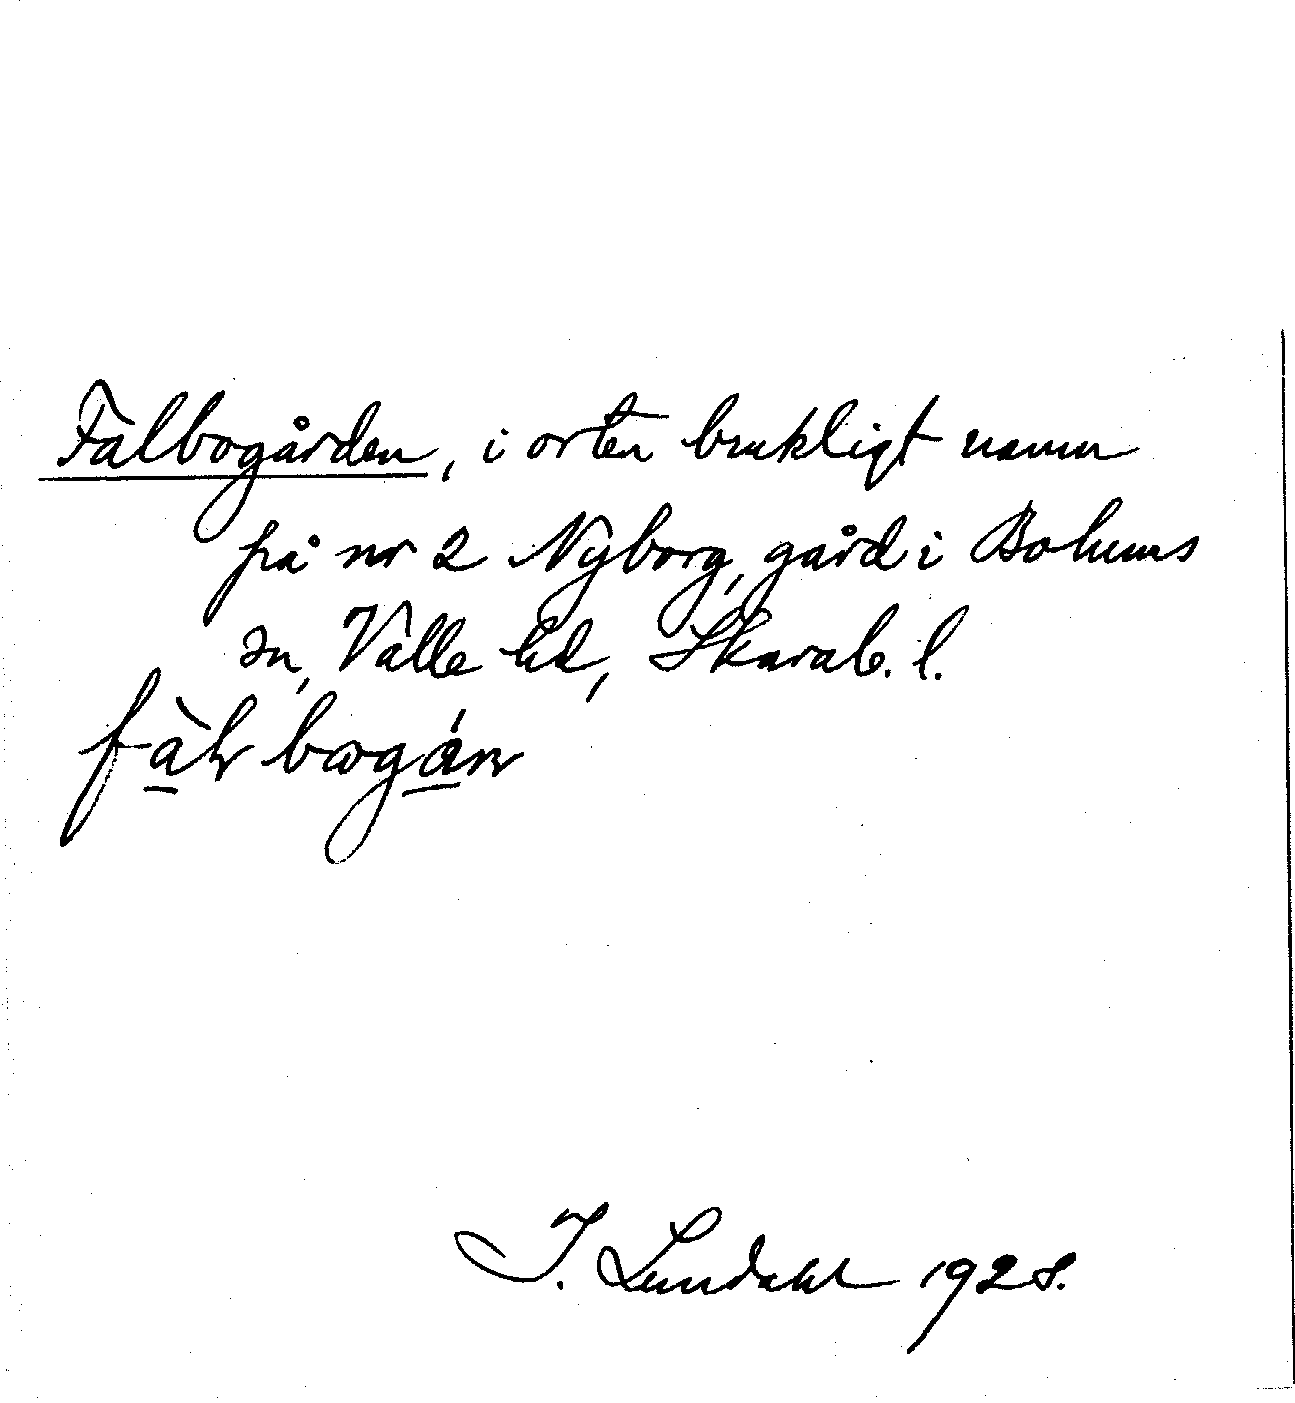 Falbogården, i orten brukligt namn
på nr 2 Nyborg, gård i Bolums
sn, Valle hd, Skarab. l.
I. Lundahl 1928.